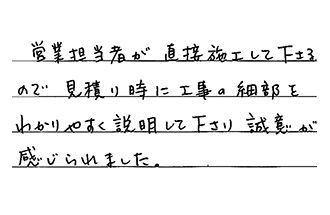 営業担当者が直接施工して下さる
ので見積り時に工事の細部を
わかりやすく説明して下さり誠意が
感じられました。